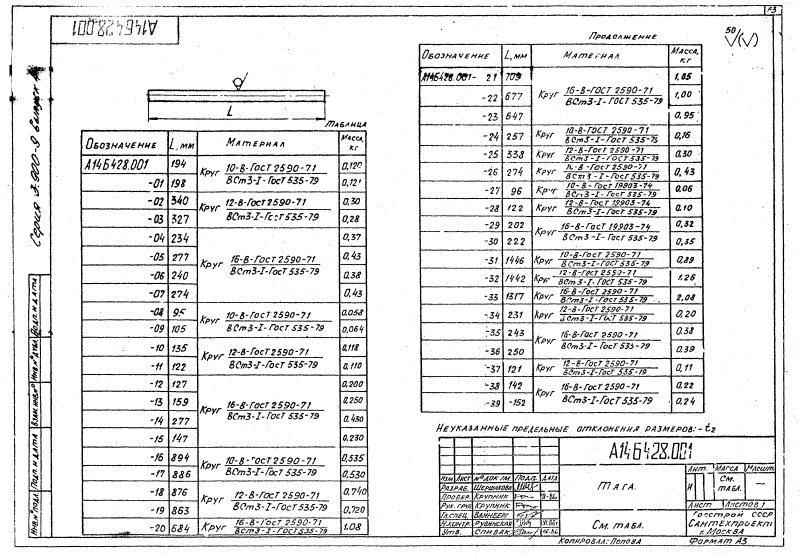 А14Б428.001
Р3
50
Серия 3.900-9 выпуск
L
Таблица
Обозначение L, мм Материал Масса, кг
А14Б428.001 194 Круг 10-В-ГОСТ 2590-71 / ВСт3-I-ГОСТ 535-79 0,120
-01 198 0,121
-02 340 Круг 12-В-ГОСТ 2590-71 / ВСт3-I-ГОСТ 535-79 0,30
-03 327 0,28
-04 234 Круг 16-В-ГОСТ 2590-71 / ВСт3-I-ГОСТ 535-79 0,37
-05 277 0,43
-06 240 0,38
-07 274 0,43
-08 95 Круг 10-В-ГОСТ 2590-71 / ВСт3-I-ГОСТ 535-79 0,058
-09 105 0,064
-10 135 Круг 12-В-ГОСТ 2590-71 / ВСт3-I-ГОСТ 535-79 0,118
-11 122 0,110
-12 127 Круг 16-В-ГОСТ 2590-71 / ВСт3-I-ГОСТ 535-79 0,200
-13 159 0,250
-14 277 0,430
-15 147 0,230
-16 894 Круг 10-В-ГОСТ 2590-71 / ВСт3-I-ГОСТ 535-79 0,535
-17 886 0,530
-18 876 Круг 12-В-ГОСТ 2590-71 / ВСт3-I-ГОСТ 535-79 0,740
-19 863 0,720
-20 684 Круг 16-В-ГОСТ 2590-71 / ВСт3-I-ГОСТ 535-79 1,08
Продолжение
Обозначение L, мм Материал Масса, кг
А14Б428.001-21 709 Круг 16-В-ГОСТ 2590-71 / ВСт3-I-ГОСТ 535-79 1,05
-22 677 1,00
-23 647 0,95
-24 257 Круг 10-В-ГОСТ 2590-71 / ВСт3-I-ГОСТ 535-75 0,16
-25 338 Круг 12-В-ГОСТ 2590-71 / ВСт3-I-ГОСТ 535-79 0,30
-26 274 Круг 16-В-ГОСТ 2590-71 / ВСт3-I-ГОСТ 535-79 0,43
-27 96 Круг 10-В-ГОСТ 19903-74 / ВСт3-I-ГОСТ 535-79 0,06
-28 122 Круг 12-В-ГОСТ 19903-74 / ВСт3-I-ГОСТ 535-79 0,10
-29 202 Круг 16-В-ГОСТ 19903-74 / ВСт3-I-ГОСТ 535-79 0,32
-30 222 0,35
-31 1446 Круг 10-В-ГОСТ 2590-71 / ВСт3-I-ГОСТ 535-79 0,89
-32 1442 Круг 12-В-ГОСТ 2590-71 / ВСт3-I-ГОСТ 535-79 1,26
-33 1317 Круг 16-В-ГОСТ 2590-71 / ВСт3-I-ГОСТ 535-79 2,08
-34 231 Круг 12-В-ГОСТ 2590-71 / ВСт3-I-ГОСТ 535-79 0,20
-35 243 Круг 16-В-ГОСТ 2590-71 / ВСт3-I-ГОСТ 535-79 0,38
-36 250 0,39
-37 121 Круг 12-В-ГОСТ 2590-71 / ВСт3-I-ГОСТ 535-79 0,11
-38 142 Круг 16-В-ГОСТ 2590-71 / ВСт3-I-ГОСТ 535-79 0,22
-39 -152 0,24
Неуказанные предельные отклонения размеров: -t2
А14Б428.001
Изм Лист № док им. Подп. Дата
Разраб. Шершакова
Провер. Крупник
Рук. груп Крупник
Гл. спец. Вайнберг
Н.контр. Рувинская
Утв. Спивак
Тяга.
См. табл.
Лит. Масса Масштаб
И См. табл. —
Лист Листов 1
Госстрой СССР
Сантехпроект
г. Москва
Копировал: Попова Формат А3
Инв.№ подл. Подп. и дата Взам. инв.№ Инв.№ дубл. Подп. и дата